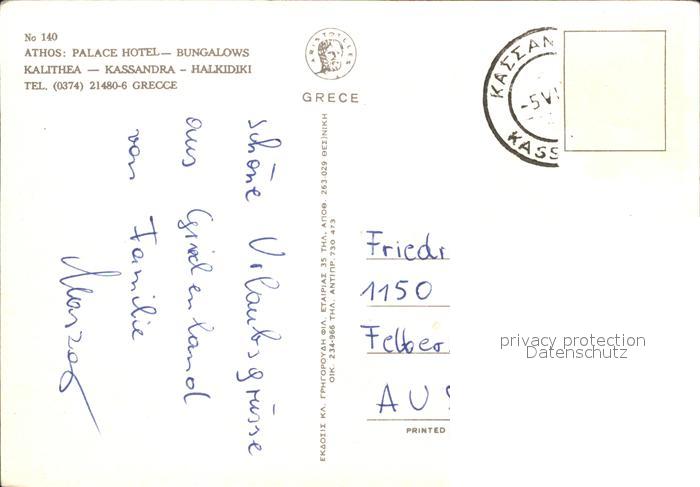 No 140
ATHOS: PALACE HOTEL — BUNGALOWS
KALITHEA — KASSANDRA – HALKIDIKI
TEL. (0374) 21480-6 GRECCE
ARISTOTELES
GRECE
schöne Urlaubsgrüsse
aus Griechenland
von Familie
ΕΚΔΟΣΙΣ ΚΛ. ΓΡΗΓΟΡΟΥΔΗ ΦΙΛ. ΕΤΑΙΡΙΑΣ 35 ΤΗΛ. ΑΠΟΘ. 263-029 ΘΕΣ)ΝΙΚΗ
ΟΙΚ. 234-966 ΤΗΛ. ΑΝΤΙΠΡ. 730 473
ΚΑΣΣΑΝ
-5 VI
KASS
Friedr
1150
Felber
AUS
PRINTED
privacy protection
Datenschutz